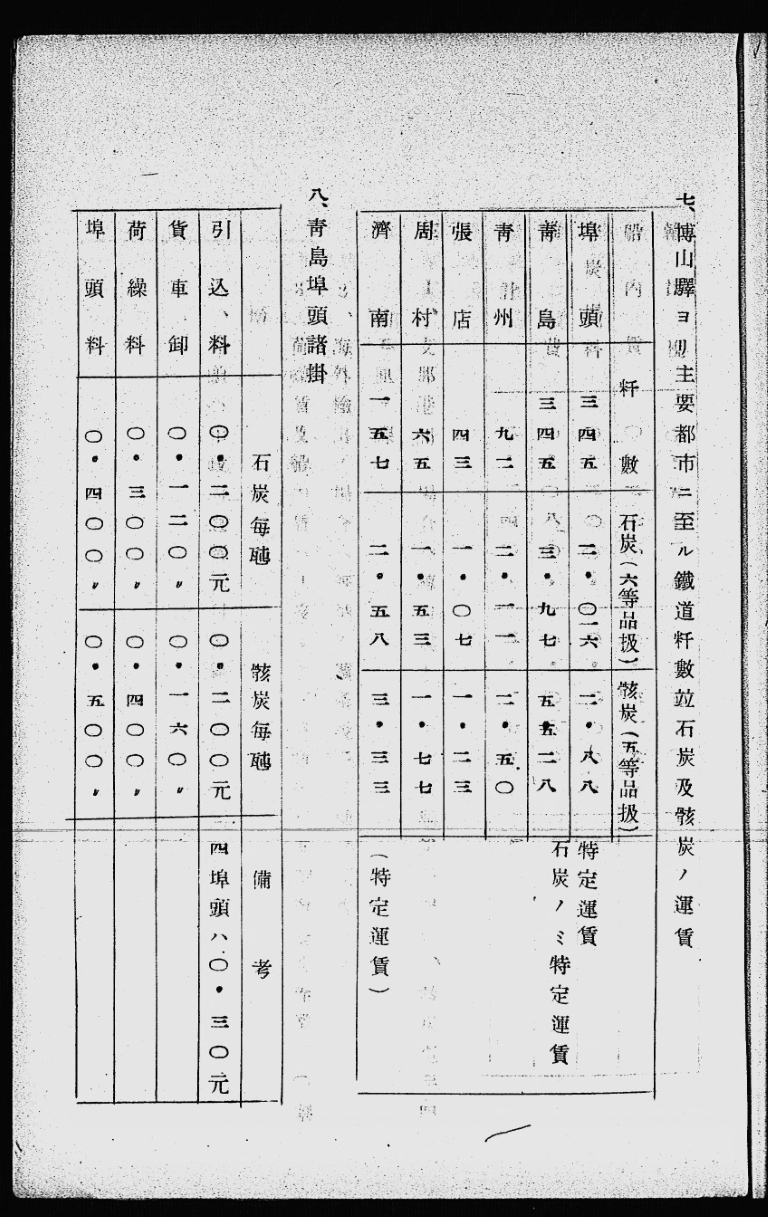 七、博山驛ヨリ主要都市ニ至ル鐵道粁數竝石炭及骸炭ノ運賃
粁數 石炭(六等品扱) 骸炭(五等品扱)
埠頭 三四五 二・〇一六 二・八八 特定運賃
靑島 三四五 三・九七 五・五二八 石炭ノミ特定運賃
靑州 九二 二・一一 二・五〇
張店 四三 一・〇七 一・二三
周村 六五 一・五三 一・七七
濟南 一五七 二・五八 三・三三 (特定運賃)
八、靑島埠頭諸掛
石炭每瓲 骸炭每瓲 備考
引込料 〇・二〇〇元 〇・二〇〇元 四埠頭ハ〇・三〇元
貨車卸 〇・一二〇〃 〇・一六〇〃
荷繰料 〇・三〇〇〃 〇・四〇〇〃
埠頭料 〇・四〇〇〃 〇・五〇〇〃